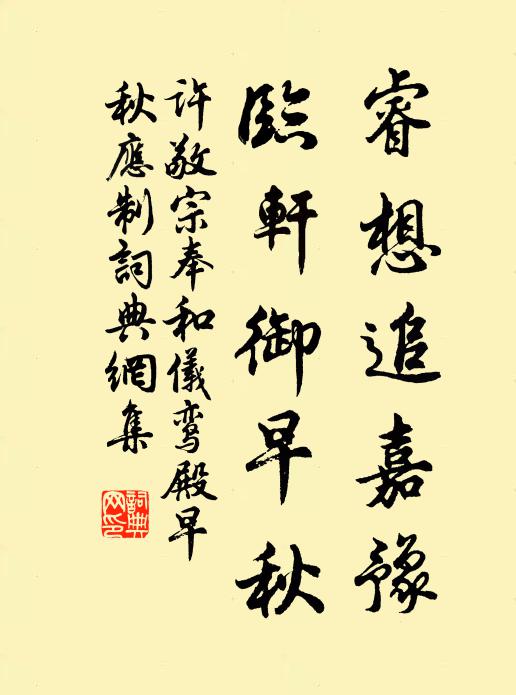 睿想追嘉豫
臨軒御早秋
許敬宗奉和儀鸾殿早
秋應制詞典網集
詞典
网印